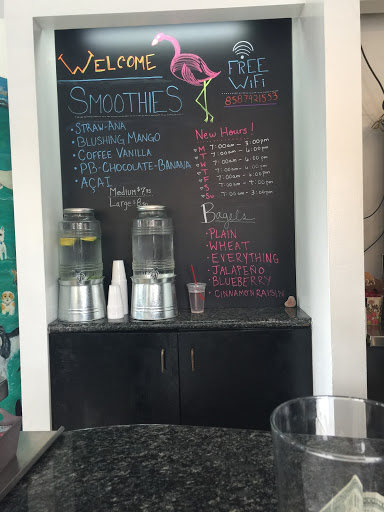 WELCOME
FREE
WiFi
8587921553
SMOOTHIES
• STRAW-ANA
• BLUSHING MANGO
• COFFEE VANILLA
• PB-CHOCOLATE-BANANA
• AÇAI
Medium
Large
New Hours!
M 7:00am - 3:00pm
T 7:00am - 6:00pm
W 7:00am - 6:00pm
T 7:00am - 6:00pm
F 7:00am - 6:00pm
S 7:00am -
Su 7:00am - 3:00pm
Bagels
• PLAIN
• WHEAT
• EVERYTHING
• JALAPEÑO
• BLUEBERRY
• CINNAMON RAISIN